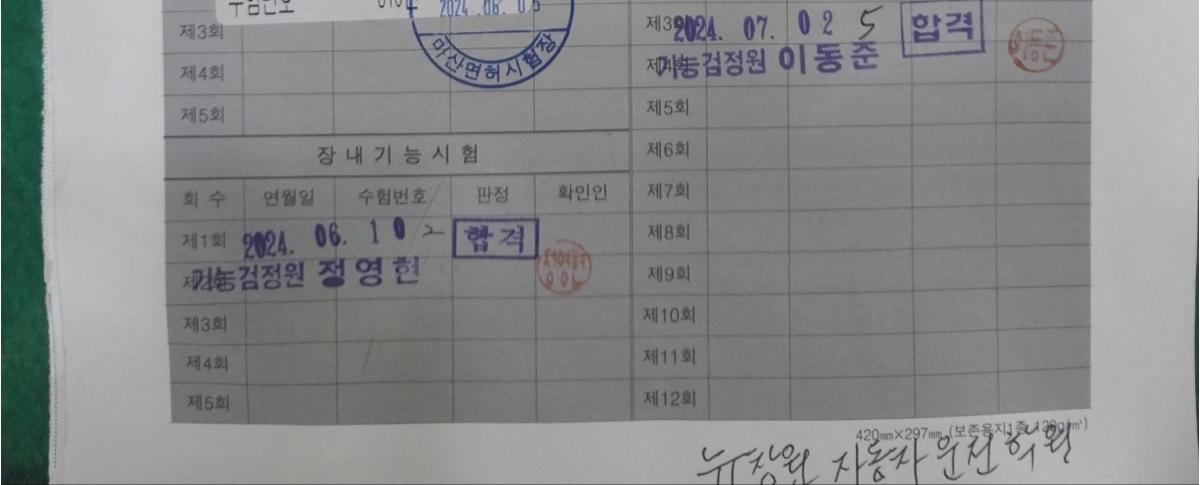 수험번호
2024.06.05
마산면허시험장
제3회
제4회
제5회
장내기능시험
회 수 연월일 수험번호 판정 확인인
제1회 2024. 06. 10 2 합격
기능검정원 정영현
제3회
제4회
제5회
제3회 2024. 07. 02 5 합격
제4회 기능검정원 이동준
제5회
제6회
제7회
제8회
제9회
제10회
제11회
제12회
420㎜×297㎜ (보존용지1종
뉴창원 자동차 운전 학원